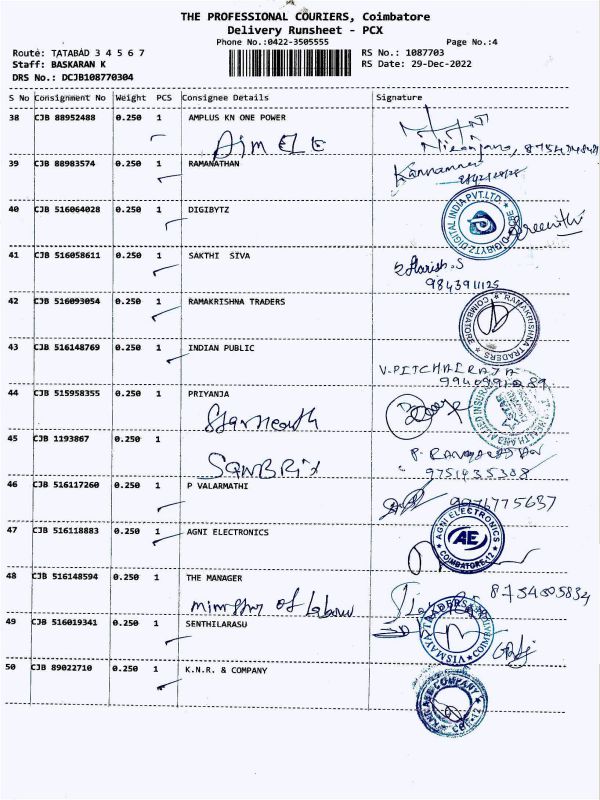 THE PROFESSIONAL COURIERS, Coimbatore
Delivery Runsheet - PCX
Phone No.:0422-3505555 Page No.:4
Route: TATABAD 3 4 5 6 7 RS No.: 1087703
Staff: BASKARAN K RS Date: 29-Dec-2022
DRS No.: DCJB108770304
S No Consignment No Weight PCS Consignee Details Signature
38 CJB 88952488 0.250 1 AMPLUS KN ONE POWER
39 CJB 88983574 0.250 1 RAMANATHAN
40 CJB 516064028 0.250 1 DIGIBYTZ
DIGIBYTZ DIGITAL INDIA PVT.LTD.
41 CJB 516058611 0.250 1 SAKTHI SIVA
Harish.S
9843911125
42 CJB 516093054 0.250 1 RAMAKRISHNA TRADERS
RAMAKRISHNA TRADERS COIMBATORE
43 CJB 516148769 0.250 1 INDIAN PUBLIC
V.PITCHAIRAJA
44 CJB 515958355 0.250 1 PRIYANJA
Starhealth
45 CJB 1193867 0.250 1
SANBRIX
9751435308
46 CJB 516117260 0.250 1 P VALARMATHI
9971775637
47 CJB 516118883 0.250 1 AGNI ELECTRONICS
AGNI ELECTRONICS AE COIMBATORE-12
48 CJB 516148594 0.250 1 THE MANAGER
of labour
49 CJB 516019341 0.250 1 SENTHILARASU
50 CJB 89022710 0.250 1 K.N.R. & COMPANY